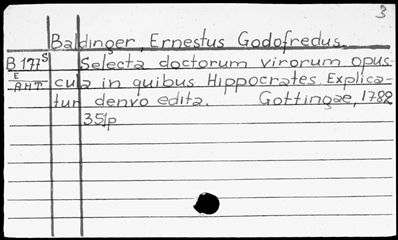 3
Baldinger, Ernestus Godofredus.
B 177 S Selecta doctorum virorum opus-
E AHT cula in quibus Hippocrates Explica-
tur denvo edita. Gottingae, 1782
351p